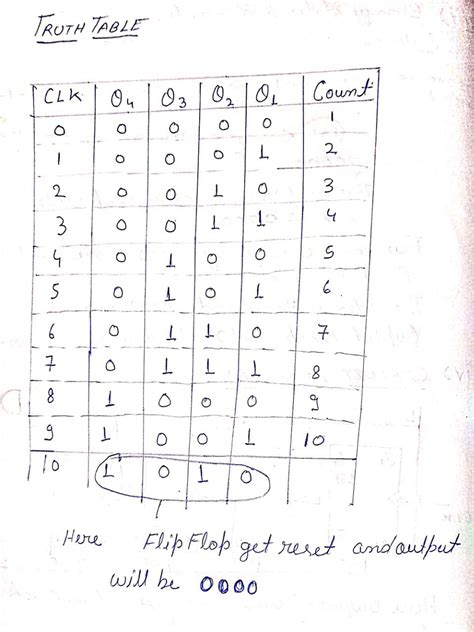 TRUTH TABLE
CLK Q4 Q3 Q2 Q1 Count
0 0 0 0 0 1
1 0 0 0 1 2
2 0 0 1 0 3
3 0 0 1 1 4
4 0 1 0 0 5
5 0 1 0 1 6
6 0 1 1 0 7
7 0 1 1 1 8
8 1 0 0 0 9
9 1 0 0 1 10
10 1 0 1 0
Here FlipFlop get reset and output
will be 0000